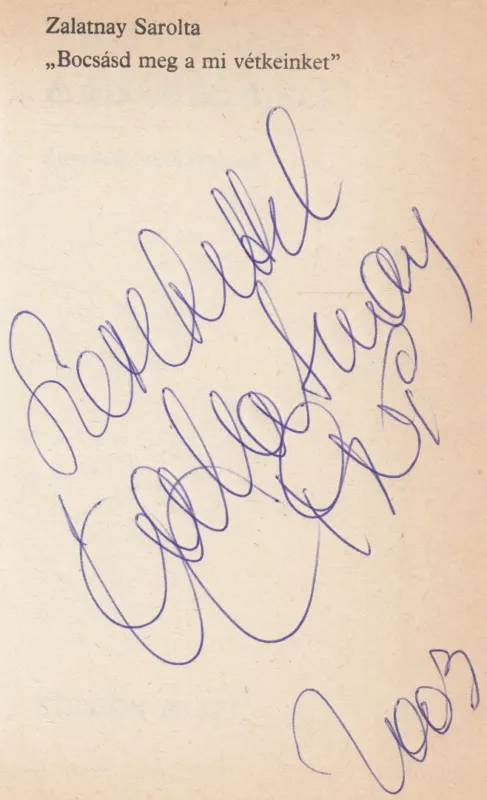 Zalatnay Sarolta
„Bocsásd meg a mi vétkeinket”
Szeretettel
Zalatnay
2003